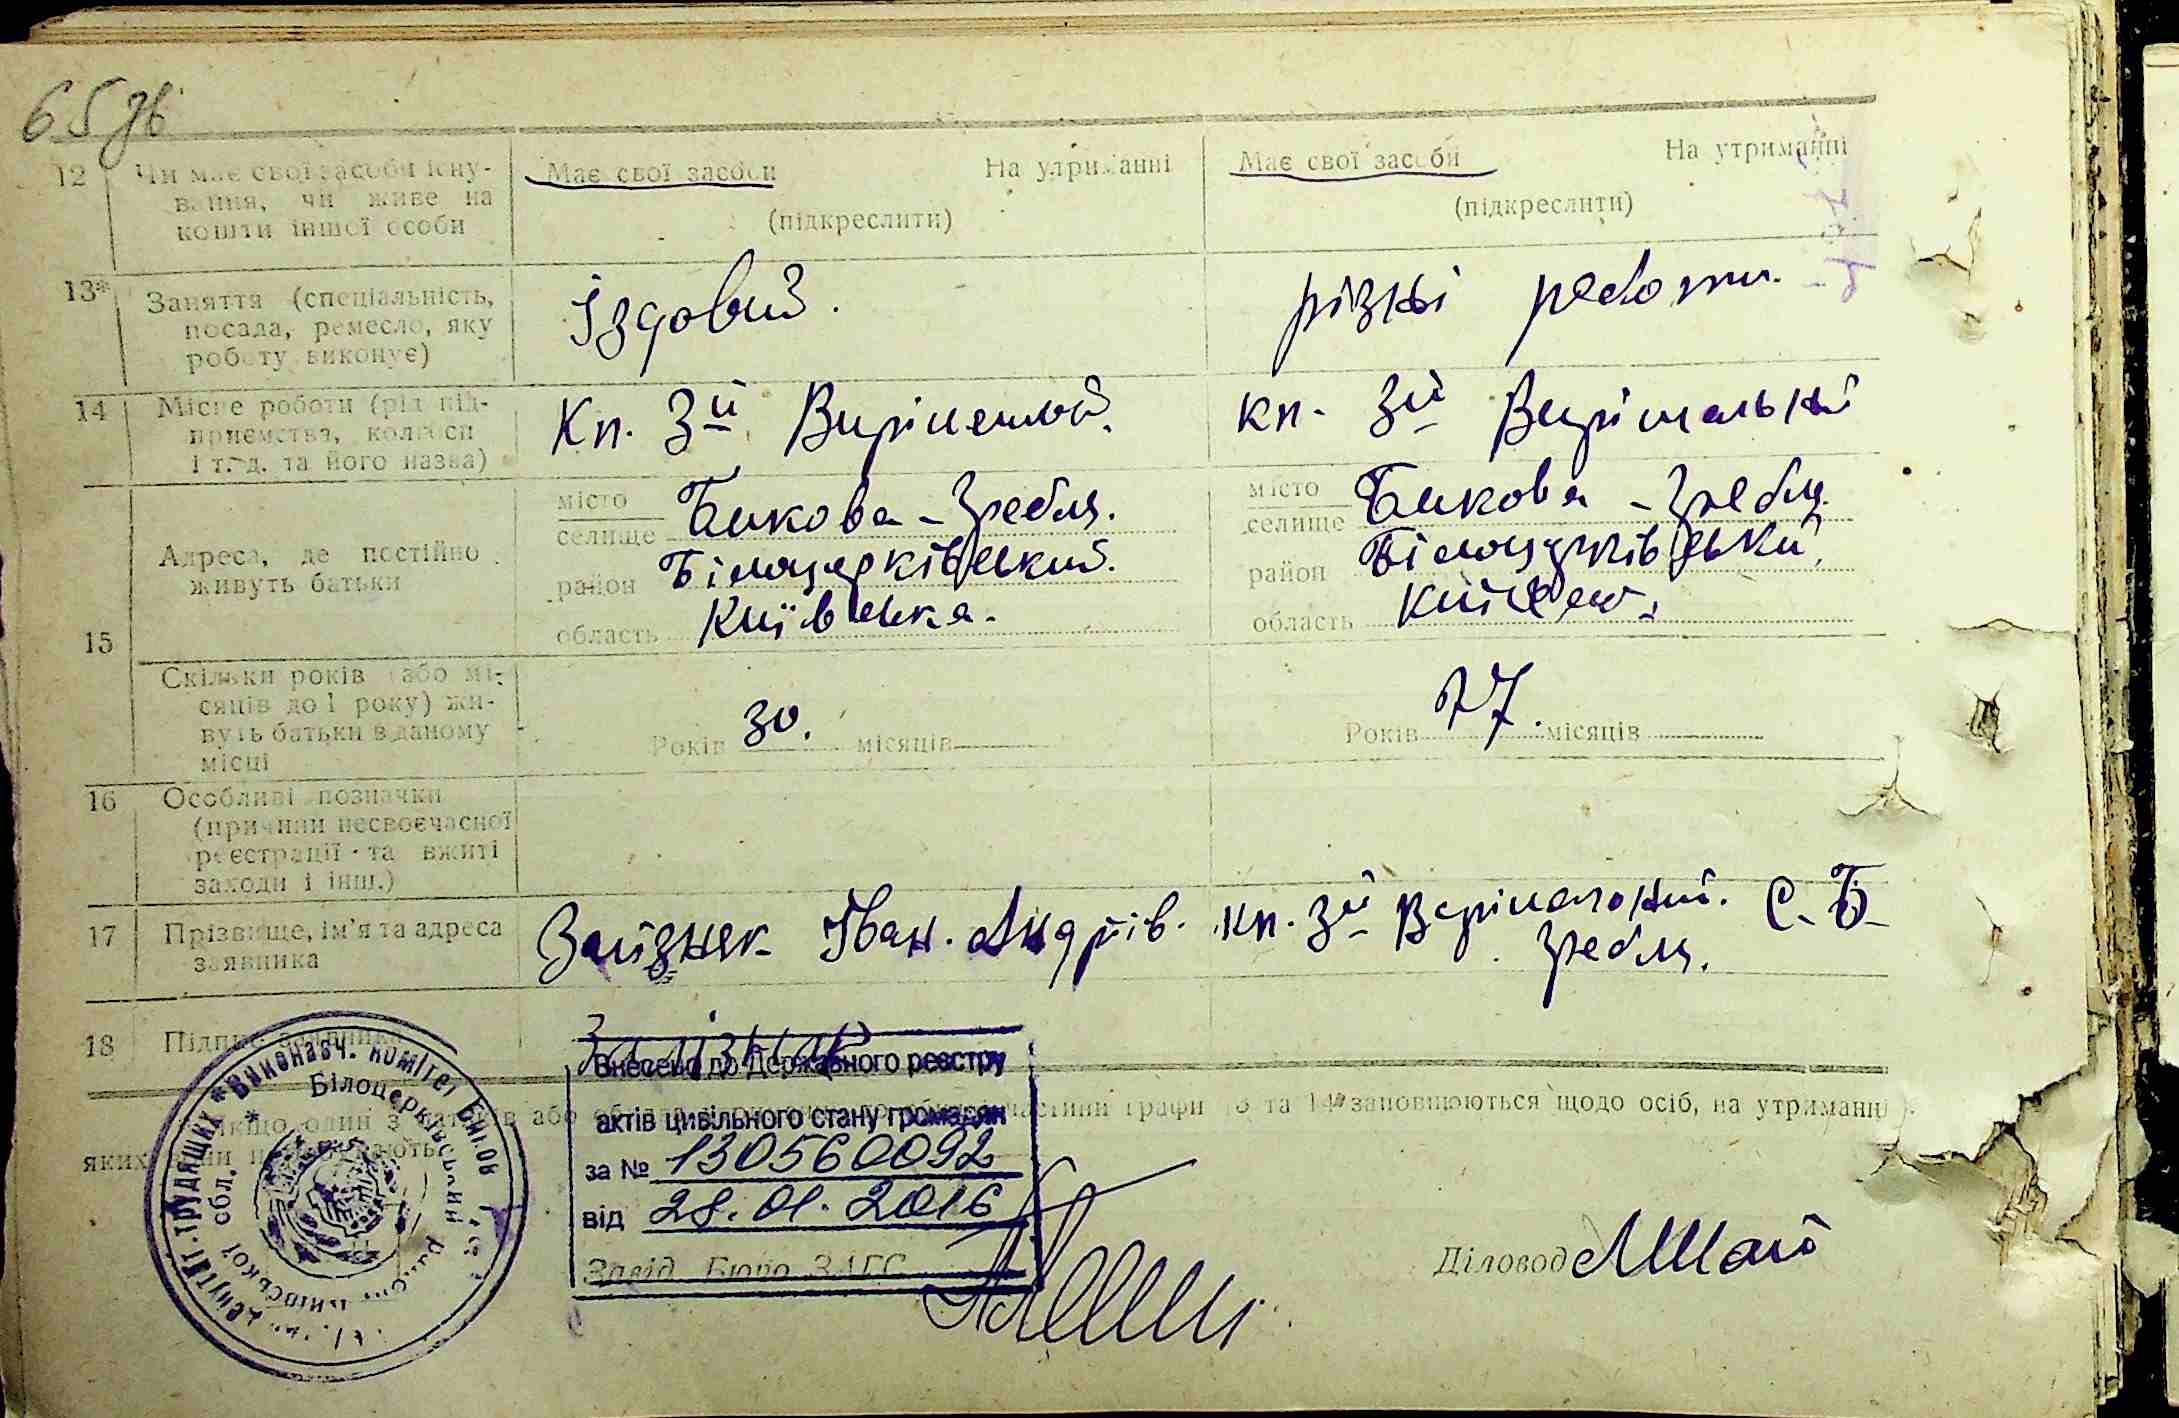 65зв
12 Чи має свої засоби існу-
вання, чи живе на
кошти іншої особи
Має свої засоби На утриманні
(підкреслити)
Має свої засоби На утриманні
(підкреслити)
13* Заняття (спеціальність,
посада, ремесло, яку
роботу виконує)
Їздовий.
різні роботи.
14 Місце роботи (рід під-
приємства, колгосп
і т. д. та його назва)
Кп. 3й Вирішальний.
кп. 3й Вирішальний
15
Адреса, де постійно
живуть батьки
місто
селище Бикова-Гребля.
район Білоцерківський.
область Київська.
місто
селище Бикова-Гребля.
район Білоцерківський.
область
Скільки років (або мі-
сяців до 1 року) жи-
вуть батьки в даному
місці
Років 30. місяців
Років 27. місяців
16 Особливі позначки
(причини несвоєчасної
реєстрації та вжиті
заходи і інш.)
17 Прізвище, ім'я та адреса
заявника
Залізняк Іван. Андріїв. кп. 3й Вирішальний. С. Б-
Гребля.
18 Підпис заявника
Внесено до Державного реєстру
актів цивільного стану громадян
за № 130560092
від 28.01.2016
Завід. Бюро ЗАГС
Якщо один з батьків або заповнюються щодо осіб, на утриманні
яких
Діловод
Виконавч. комітет
Білоцерківський
обл.